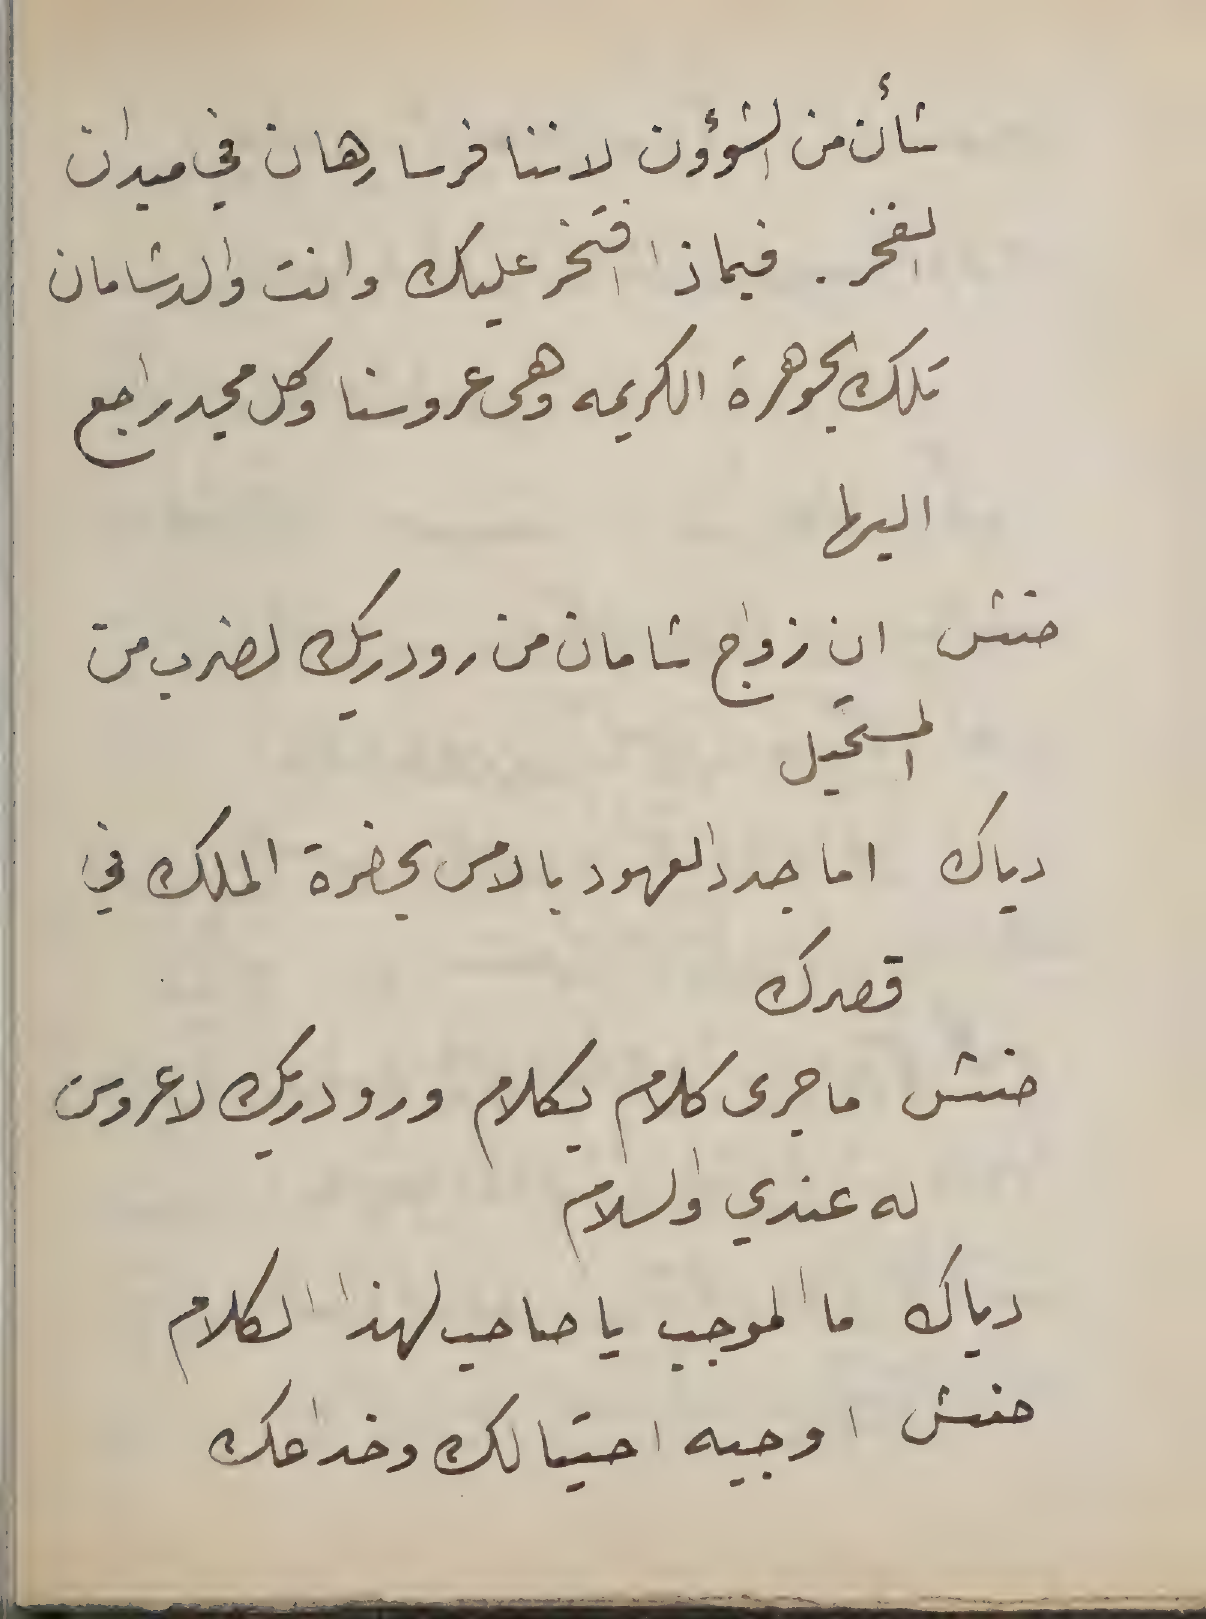 شأن من الشؤون لاننا فرسا رهان في ميدان
الفخر . فبماذا افتخر عليك وانت والد شامان
تلك الجوهرة الكريمه وهى عروسنا وكل مجد راجع
اليها
حنتش ان زواج شامان من رودريك لضرب من
المستحيل
دياك اما جدد العهود بالامس بحضرة الملك في
قصرك
حنتش ما جرى كلام بكلام ورودريك لا عروس
له عندي والسلام
دياك ما الموجب يا صاحب لهذا الكلام
حنتش اوجبه احتيالك وخداعك